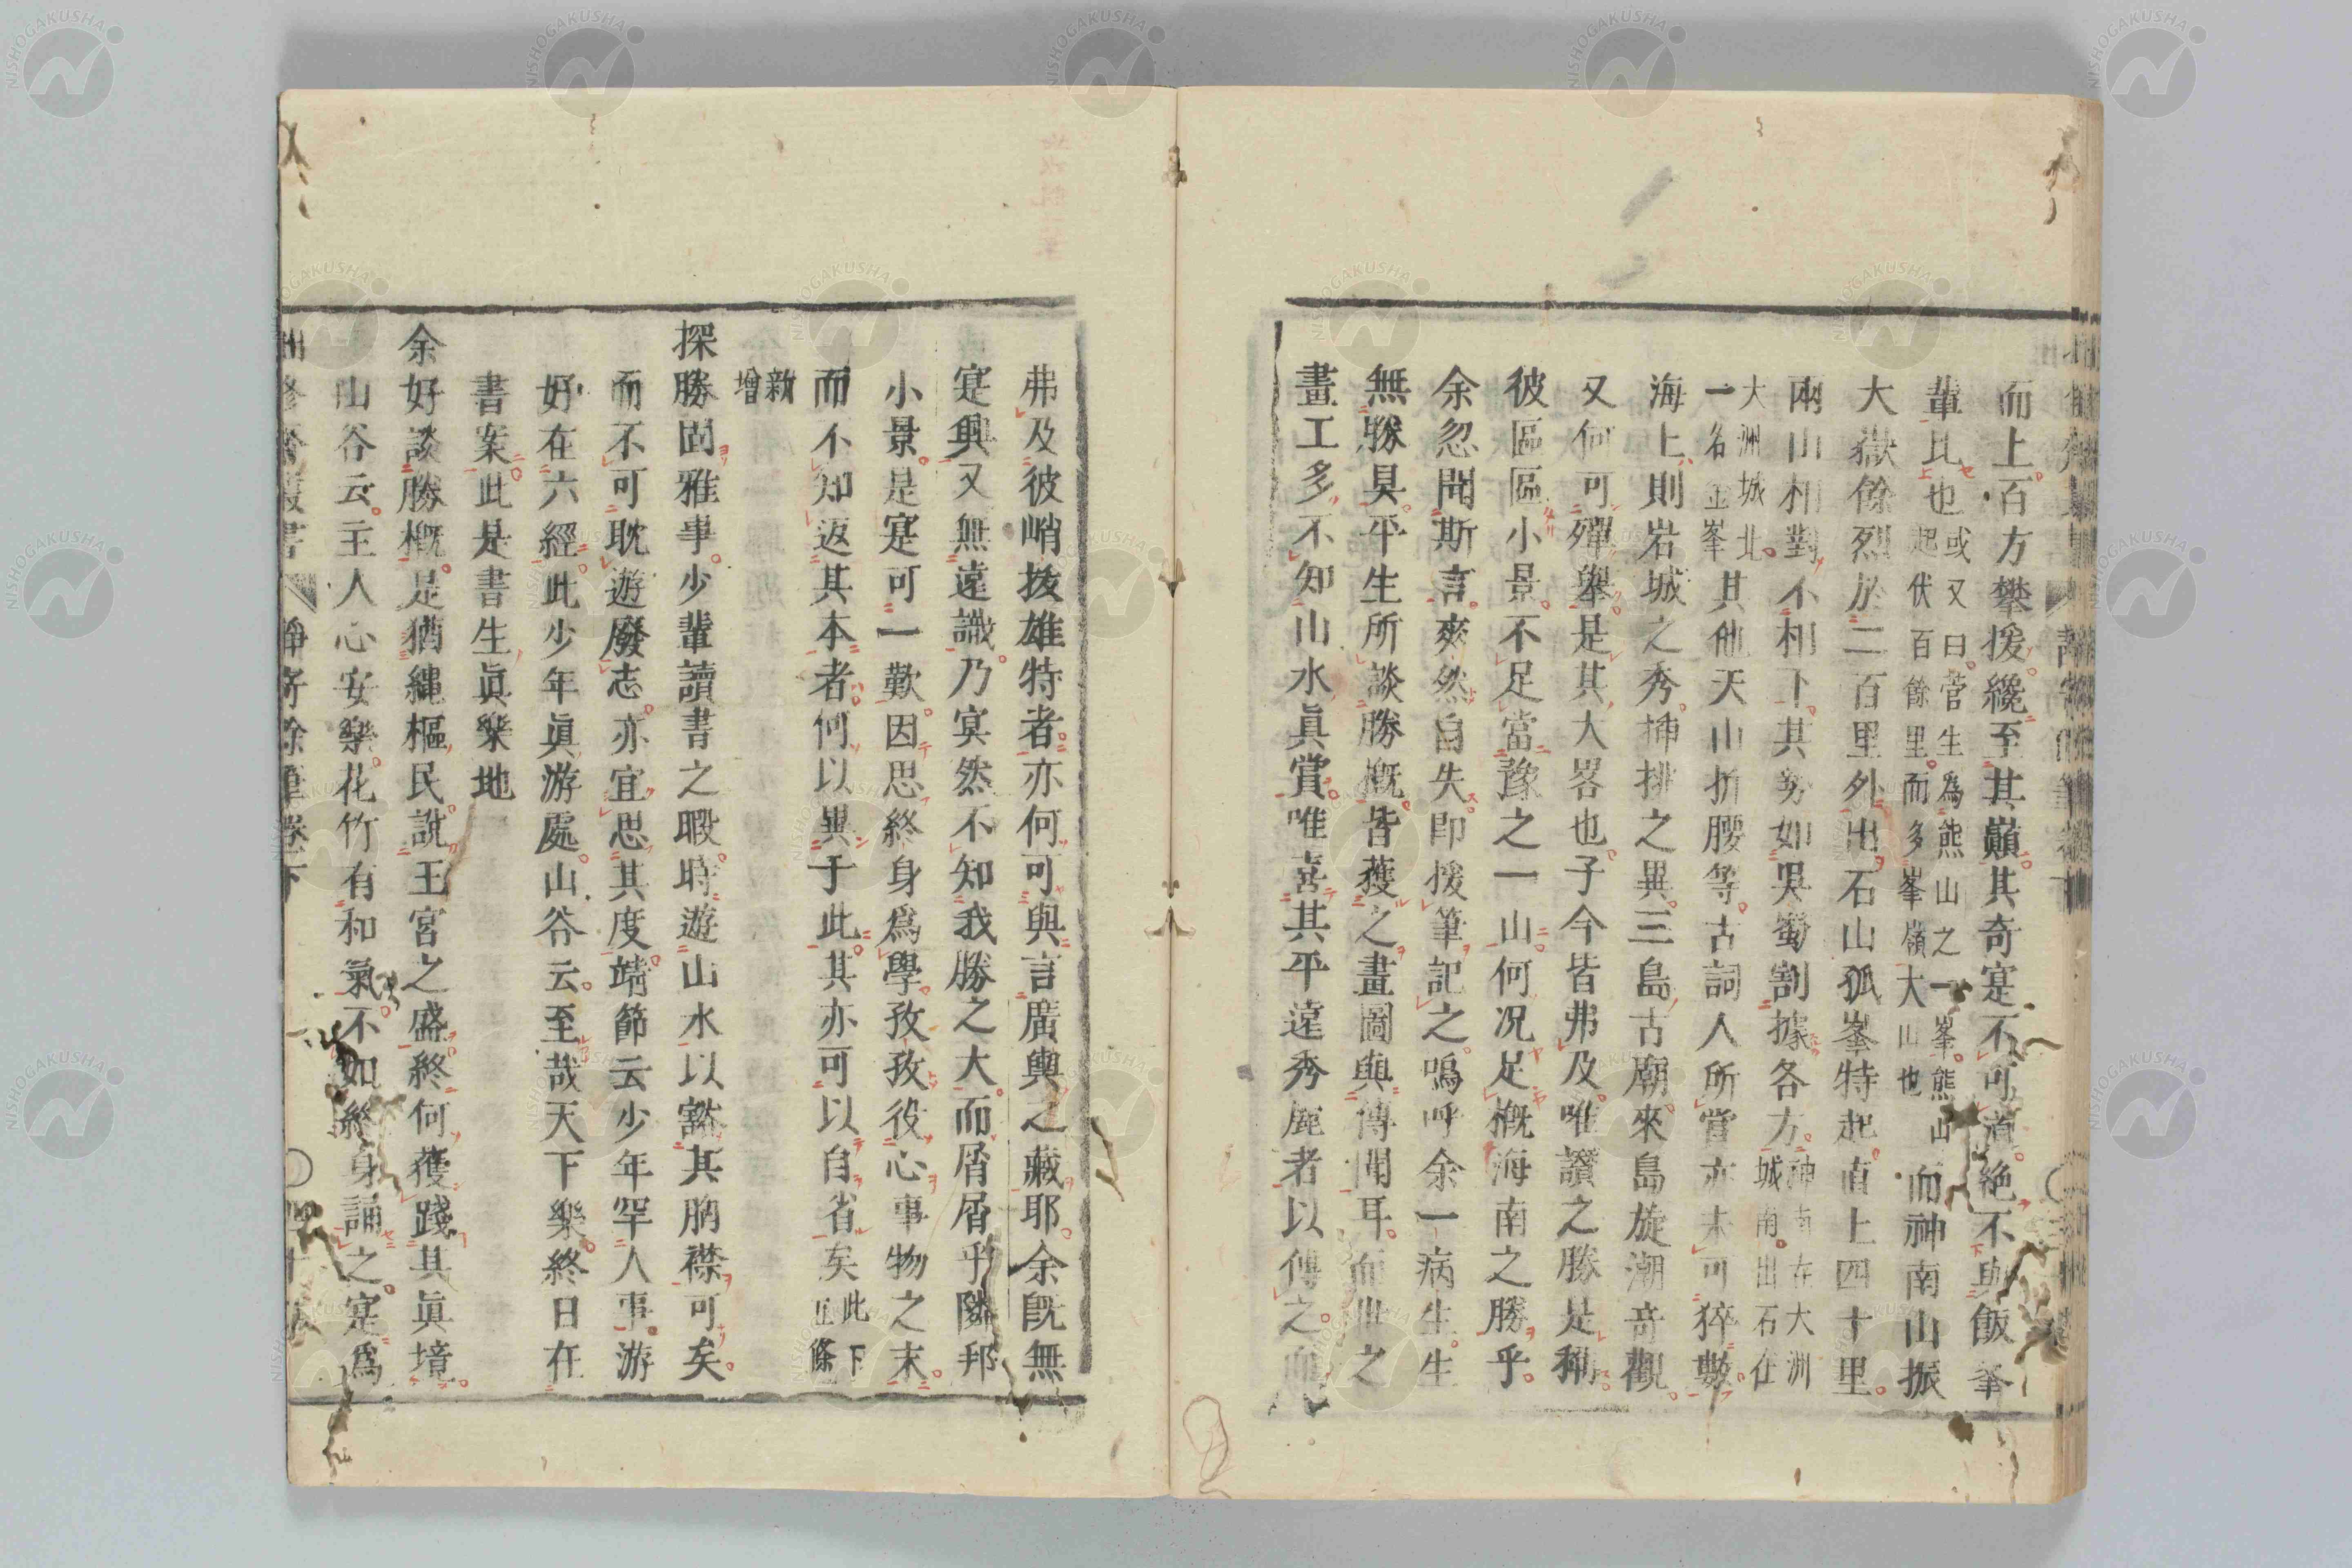 而上百方攀援纔至其巓其奇寔不可道絶不與飯峯
輩比也或又曰菅生為熊山之一峯熊山
起伏百餘里而多峯嶺大山也而神南山振
大嶽餘烈於二百里外出石山孤峯特起直上四十里
兩山相對不相下其勢如吳蜀割據各方神南在大洲
城南出石在
大洲城北
一名並峯其他天山折腰等古詞人所賞亦未可猝數
海上則岩城之秀挿排之異三島古廟來島旋潮奇觀
又何可殫擧是其大畧也子今皆弗及唯讃之勝是稱
彼區區小景不足當豫之一山何况足槪海南之勝乎
余忽聞斯言爽然自失卽援筆記之嗚呼余一病生生
無勝具平生所談勝槪皆獲之畫圖與傳聞耳而世之
畫工多不知山水眞賞唯喜其平遠秀麗者以傳之而
弗及彼峭拔雄特者亦何可與言廣輿之藏耶余旣無
寔興又無遠識乃冥然不知我勝之大而屑屑乎隣邦
小景是寔可一歎因思終身爲學孜孜役心事物之末
而不知返其本者何以異于此其亦可以自省矣此下
五條
新
增
探勝固雅事少輩讀書之暇時遊山水以豁其胸襟可矣
而不可耽遊廢志亦宜思其度靖節云少年罕人事游
好在六經此少年眞游處山谷云至哉天下樂終日在
書案此是書生眞樂地
余好談勝槪是猶繩樞民說王宮之盛終何獲踐其眞境
山谷云主人心安樂花竹有和氣不如終身誦之寔爲
靜寄餘筆卷下
NISHOGAKUSHA